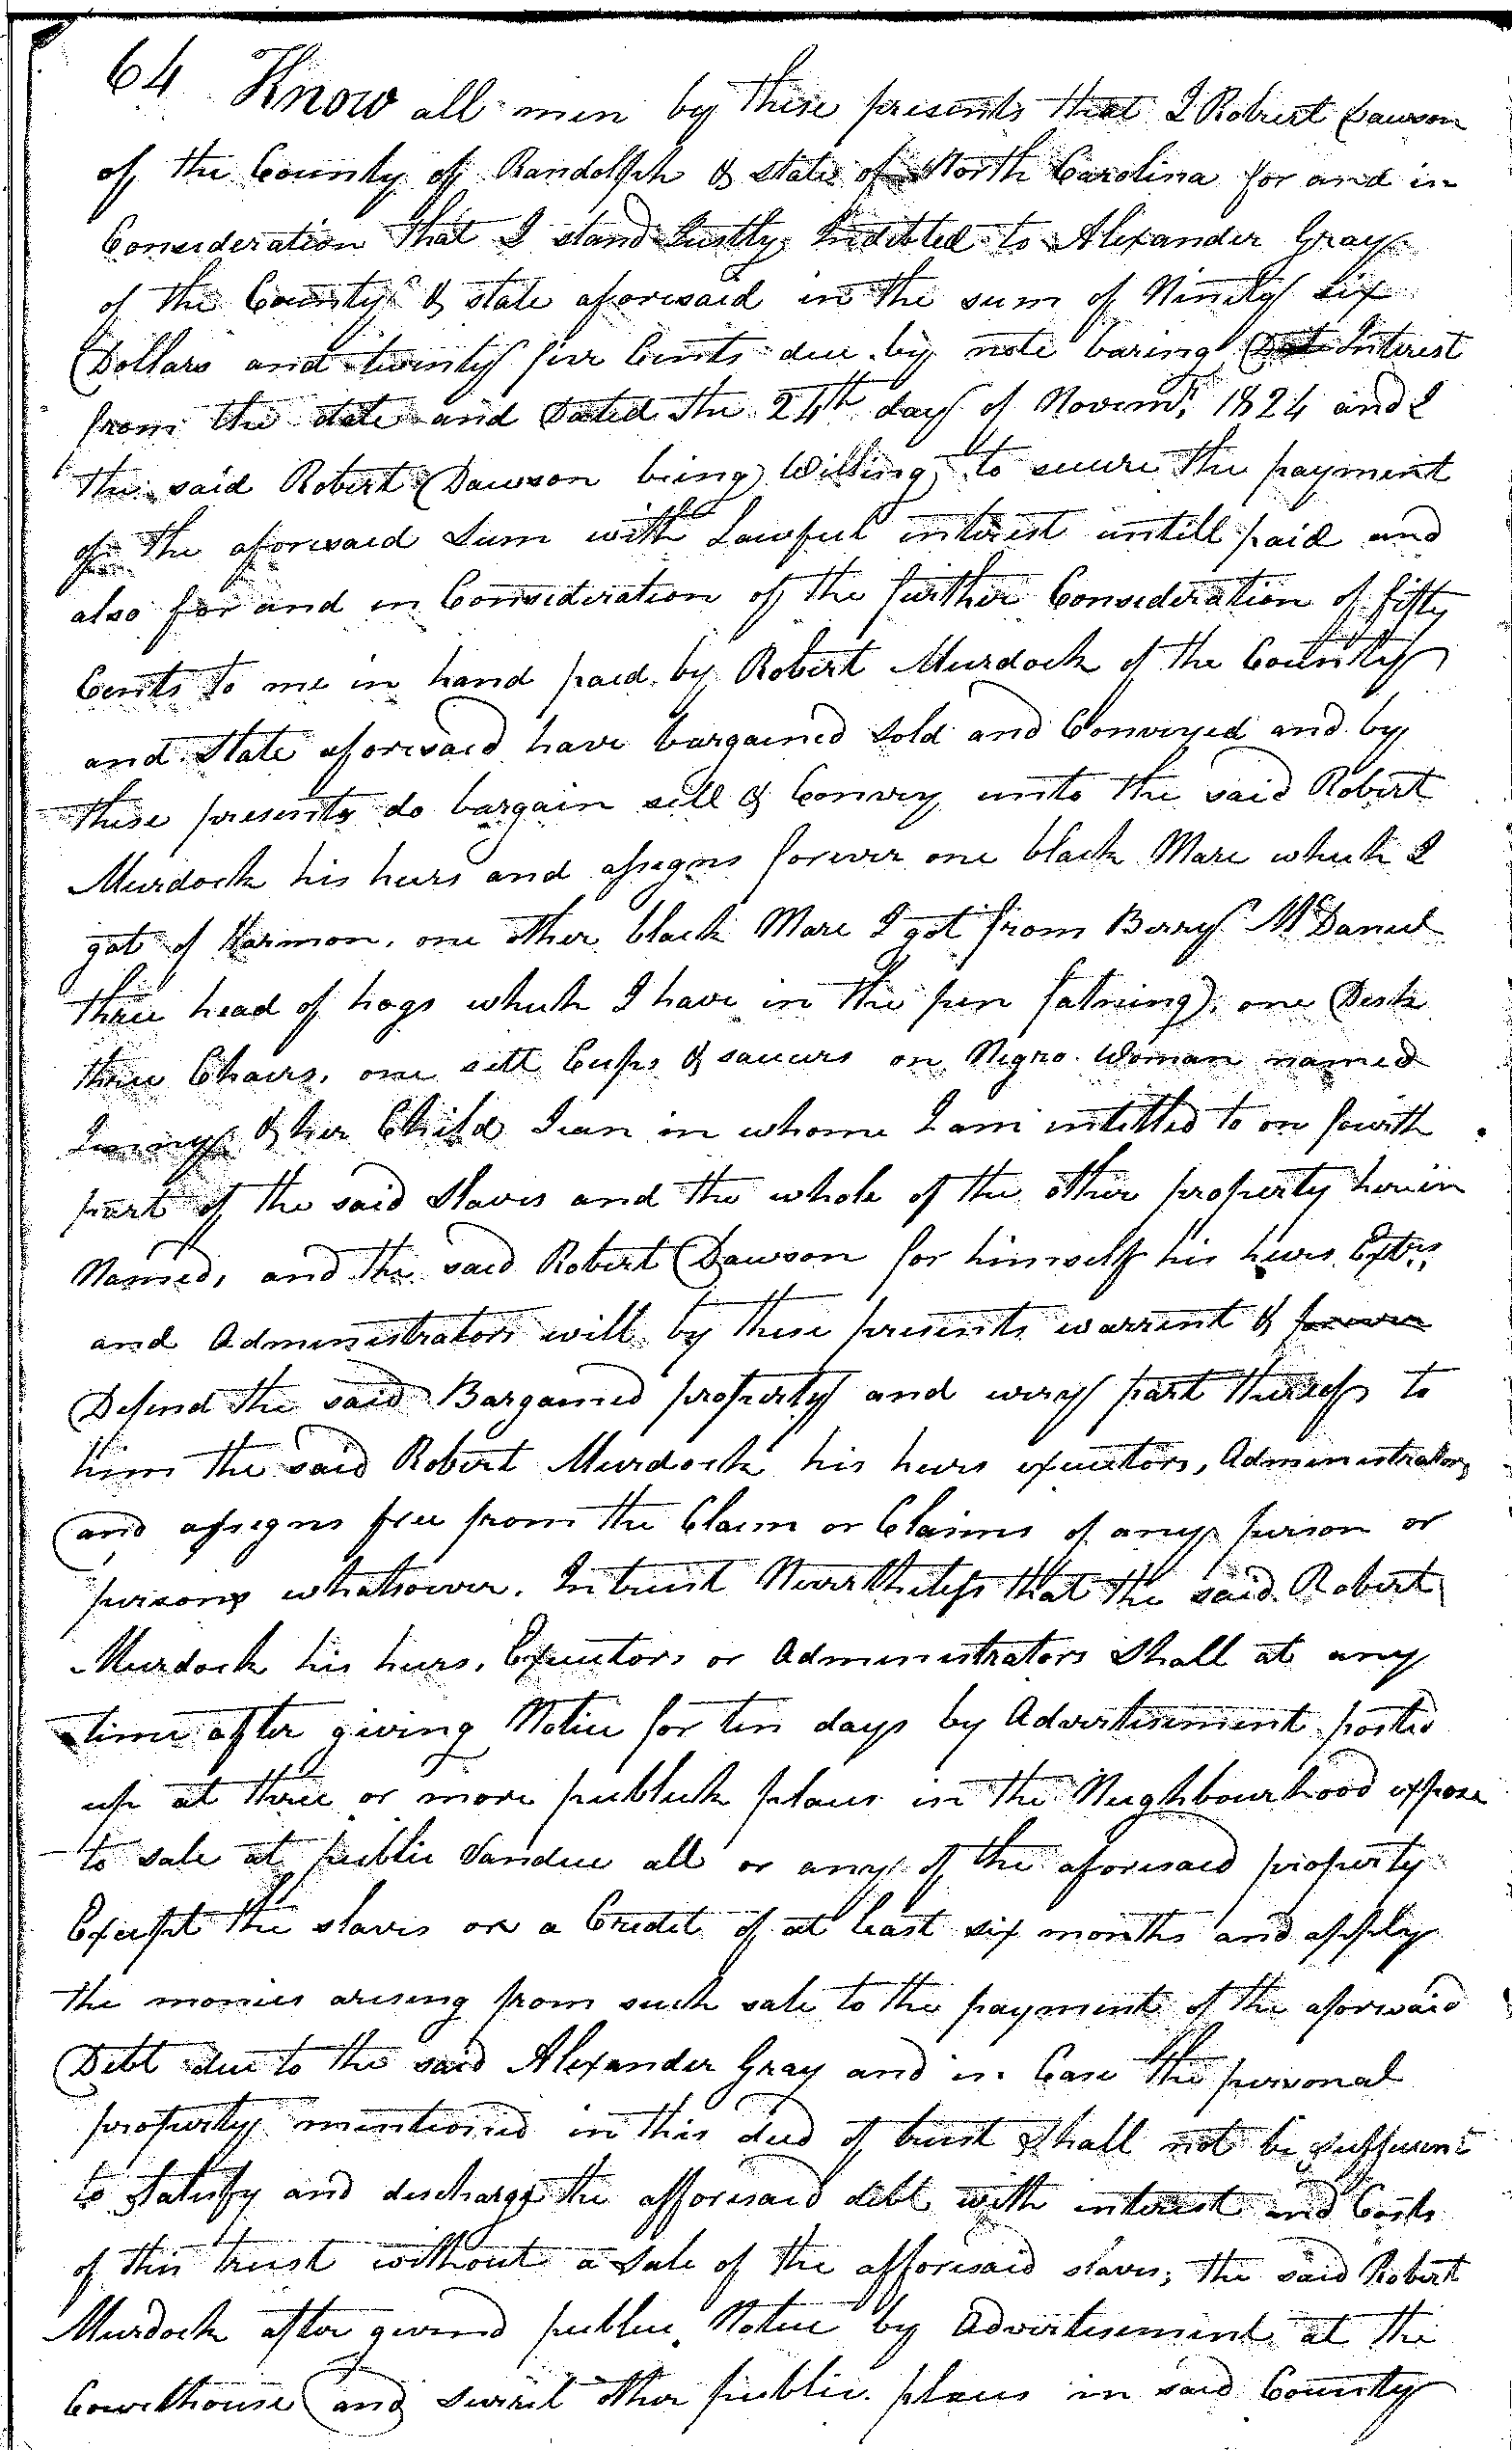 64 Know all men by these presents that I Robert Dawson
of the County of Randolph & state of North Carolina for and in
Consideration that I stand Justly Indebted to Alexander Gray
of the County & state aforesaid in the sum of Ninety six
Dollars and twenty five Cents due by note baring Interest
from the date and Dated the 24th day of Novemr. 1824 and I
the said Robert Dawson being Willing to secure the payment
of the aforesaid Sum with Lawful interest untill paid and
also for and in Consideration of the further Consideration of fifty
Cents to me in hand paid by Robert Murdock of the County
and State aforesaid have bargained sold and Conveyed and by
these presents do bargain sell & Convey unto the said Robert
Murdock his heirs and assigns forever one black Mare which I
got of Harmon, one other black Mare I got from Berry McDaniel
three head of hogs which I have in the pen fatning, one Desk
three Chairs, one sett Cups & saucers on Negro Woman named
& her Child Jean in whome I am intitled to on fourth
part of the said Slaves and the whole of the other property herein
Named, and the said Robert Dawson for himself his heirs Extrs,
and Administrators will by these presents warrent & forever
Defend the said Bargained property and every part thereof to
him the said Robert Murdock his heirs executors, Administrators
and assigns free from the Claim or Claims of any person or
persons whatsoever. In trust Nevertheless that the said Robert
Murdock his heirs, Executors or Administrators Shall at any
time after giving Notice for ten days by Advertisement posted
up at three or more publick places in the Neighbourhood expose
to sale at public Vandue all or any of the aforesaid property
Except the slaves on a Credit of at least six months and apply
the monies arising from such sale to the payment of the aforesaid
Debt due to the said Alexander Gray and in Case the personal
property mentioned in this deed of trust Shall not be sufficient
to Satisfy and discharge the afforesaid debt with interest and Costs
of this trust without a Sale of the afforesaid slaves, the said Robert
Murdock after giveind public Notice by Advertisement at the
Courthouse and Sevrel other public places in said County